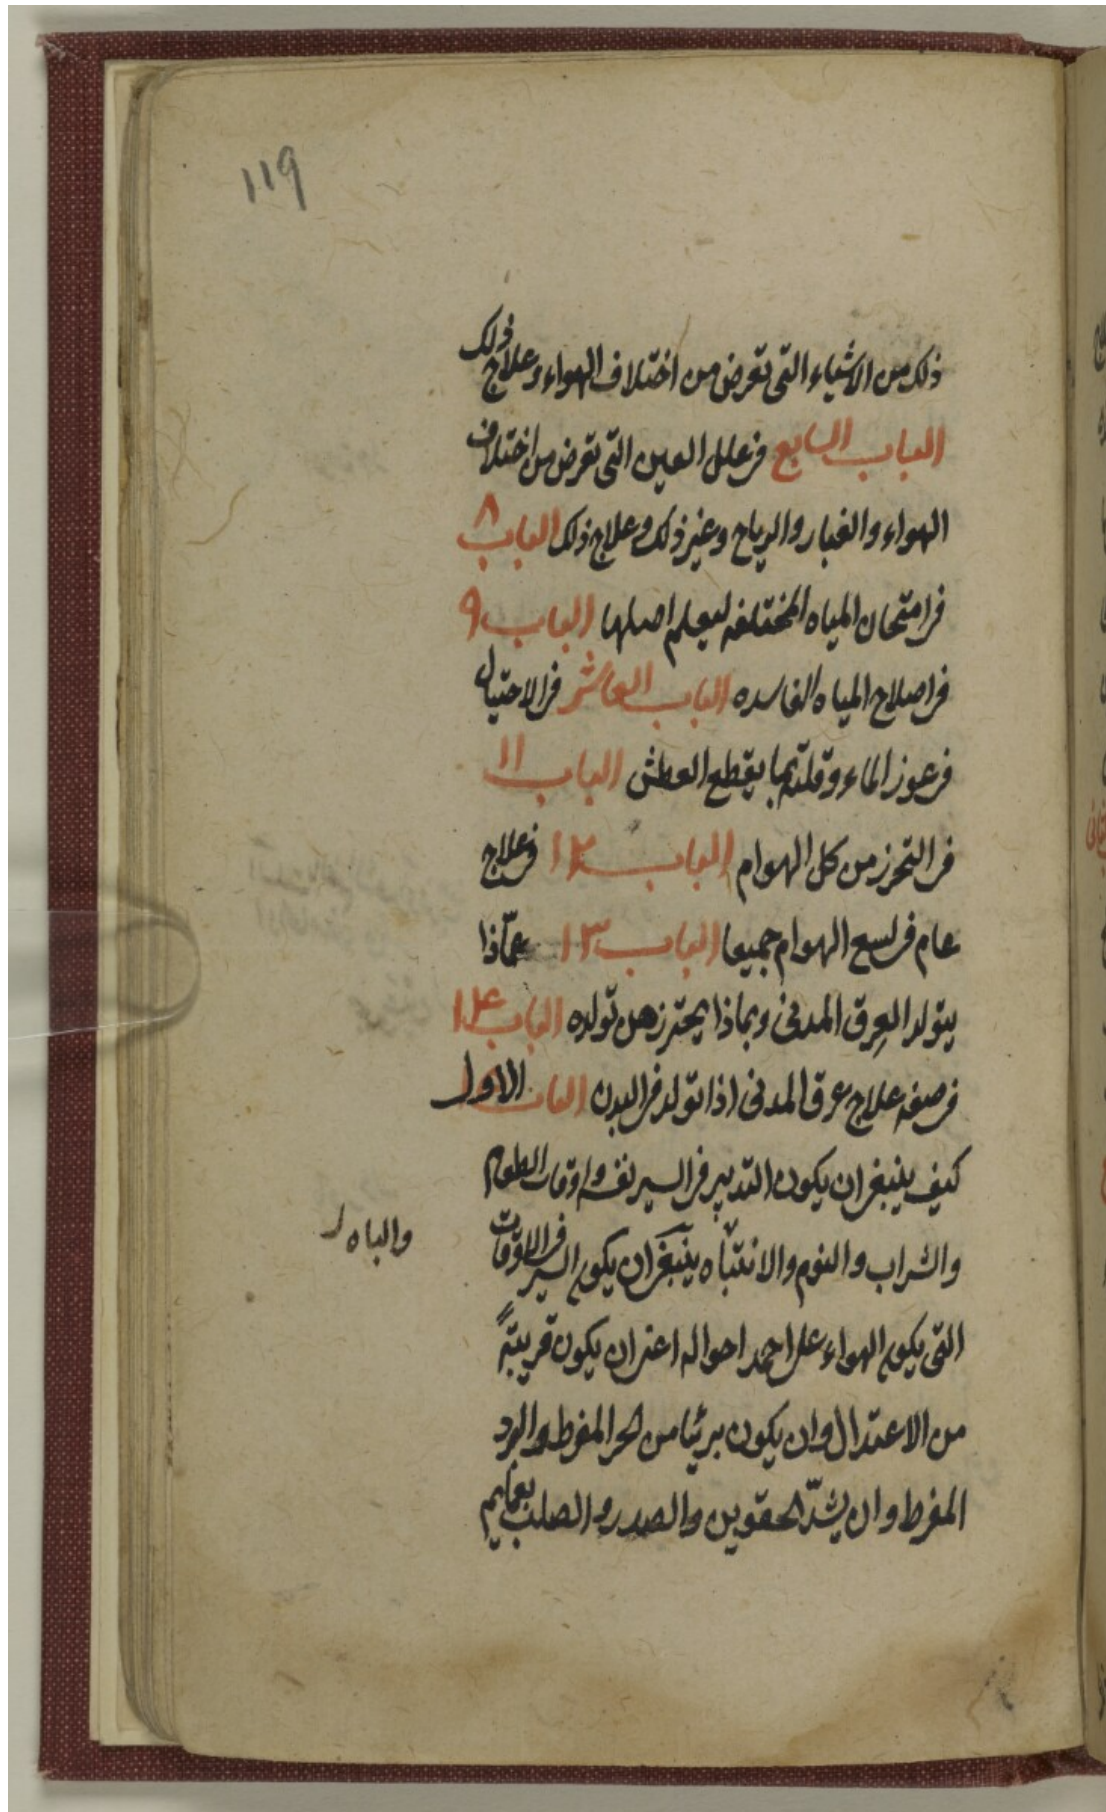 119
ذلك من الاشياء التى تعرض من اختلاف الهواء وعلاج ذلك
الباب السابع فى علل العين التى تعرض من اختلاف
الهواء والغبار والرياح وغير ذلك وعلاج ذلك الباب ٨
فى امتحان المياه المختلفه ليعلم اصلها الباب ٩
فى اصلاح المياه الفاسده الباب العاشر فى الاحتيال
فى عوز الماء وقلته بما يقطع العطش الباب ١١
فى التحرز من كل الهوام الباب ١٢ فى علاج
عام فى لسع الهوام جميعا الباب ١٣ عمّاذا
يتولد العِرق المدنى وبماذا يحترز من تولده الباب ١٤
فى صفه علاج عرق المدنى اذا تولد فى البدن الباب الاول
كيف ينبغى ان يكون التدبير فى السير نفسه واوقات الطعام
والشراب والنوم والانتباه ينبغى ان يكون السير فى الاوقات
والباه
التى يكون الهواء على احمد احواله اعنى ان يكون قريبةً
من الاعتدال وان يكون بريئا من الحر المفرط والبرد
المفرط وان يشدّ الحقوين والصدر والصلب بعمايم